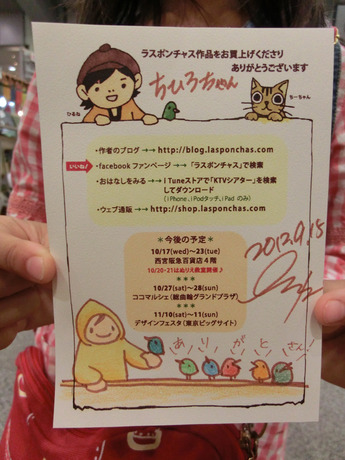 ラスポンチャス作品をお買上げくださり
ありがとうございます
ちひろちゃん
ひるね
ちーちゃん
・作者のブログ →→ http://blog.lasponchas.com
いいね!
・facebook ファンページ →→「ラスポンチャス」で検索
・おはなしをみる →→ i Tuneストアで「KTVシアター」を検索
してダウンロード
(iPhone、iPodタッチ、iPad のみ)
・ウェブ通販 →→ http://shop.lasponchas.com
＊今後の予定＊
10/17(wed)~23(tue)
西宮阪急百貨店4階
10/20-21はぬりえ教室開催♪
10/27(sat)~28(sun)
ココマルシェ(総曲輪グランドプラザ)
11/10(sat)~11(sun)
デザインフェスタ(東京ビッグサイト)
2012.9.15
ありがとさん!